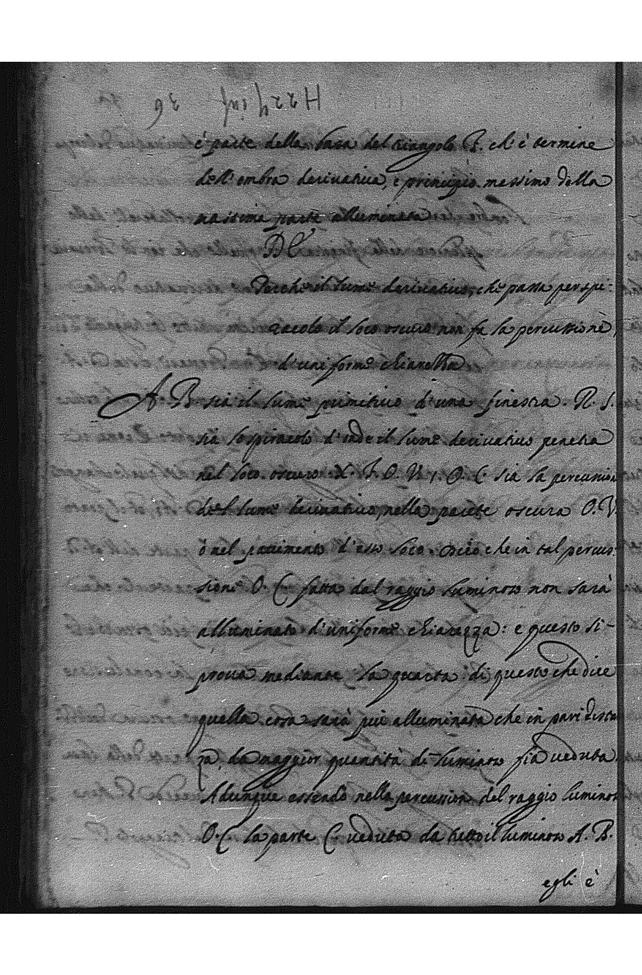 H 229 inf
36
è parte della basa del triangolo P. ch'è termine
dell'ombra derivativa, è principio massimo della
massima parte alluminata
Perche il lume derivativo, che passa per spi:
racolo il loco oscuro non fa la percussione,
d'uniforme chiarezza
A B sia il lume primitivo d'una finestra. R. S.
sia lo spiracolo d'onde il lume derivativo penetra
nel loco oscuro X. T. O. V; O. C sia la percussion
del lume derivativo, nella parete oscura O. V.
ò nel pavimento d'esso loco. dico che in tal percus:
sione O. C fatta dal raggio luminoso non sarà
alluminato d'uniforme chiarezza: e questo si-
prova mediante la quarta di questo che dice
quella cosa sarà più alluminata che in pari dista
za, da maggior quantità di luminoso fia veduta
Adunque essendo nella percussion del raggio luminos
O. C la parte C veduta da tutto il luminoso A. B.
egli è